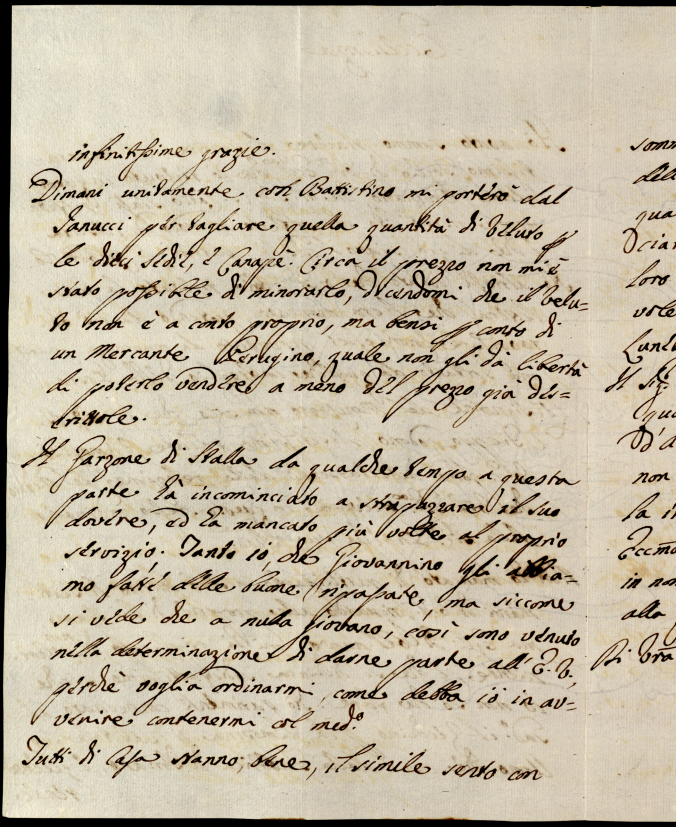 infinitissime grazie.
Dimani unitamente con Battistino mi porterò dal
Janucci per tagliare quella quantità di veluto p
le dieci sedie, e Canapè. Circa il prezzo non mi è
stato possibile di minorarlo, dicendomi che il velu=
to non è a conto proprio, ma bensì p conto di
un Mercante Perugino, quale non gli dà libertà
di poterlo vendere a meno del prezzo già des=
crittole.
Il Garzone di stalla da qualche tempo a questa
parte hà incominciato a strapazzare il suo
dovere, ed hà mancato più volte al proprio
servizio. Tanto io, che Giovannino gli abbia=
mo fatte delle buone ripassate, ma siccome
si vede che a nulla giovano, così sono venuto
nella determinazione di darne parte all' E. V.
perchè voglia ordinarmi, come debba io in av=
venire contenermi col med.º
Tutti di Casa stanno bene, il simile sento con
somm
dell
qua
Dciar
loro
vole
Lune
Il Sig
qu
D'a
non
la i
Eccm̃a
in non
alla
Di Vrã